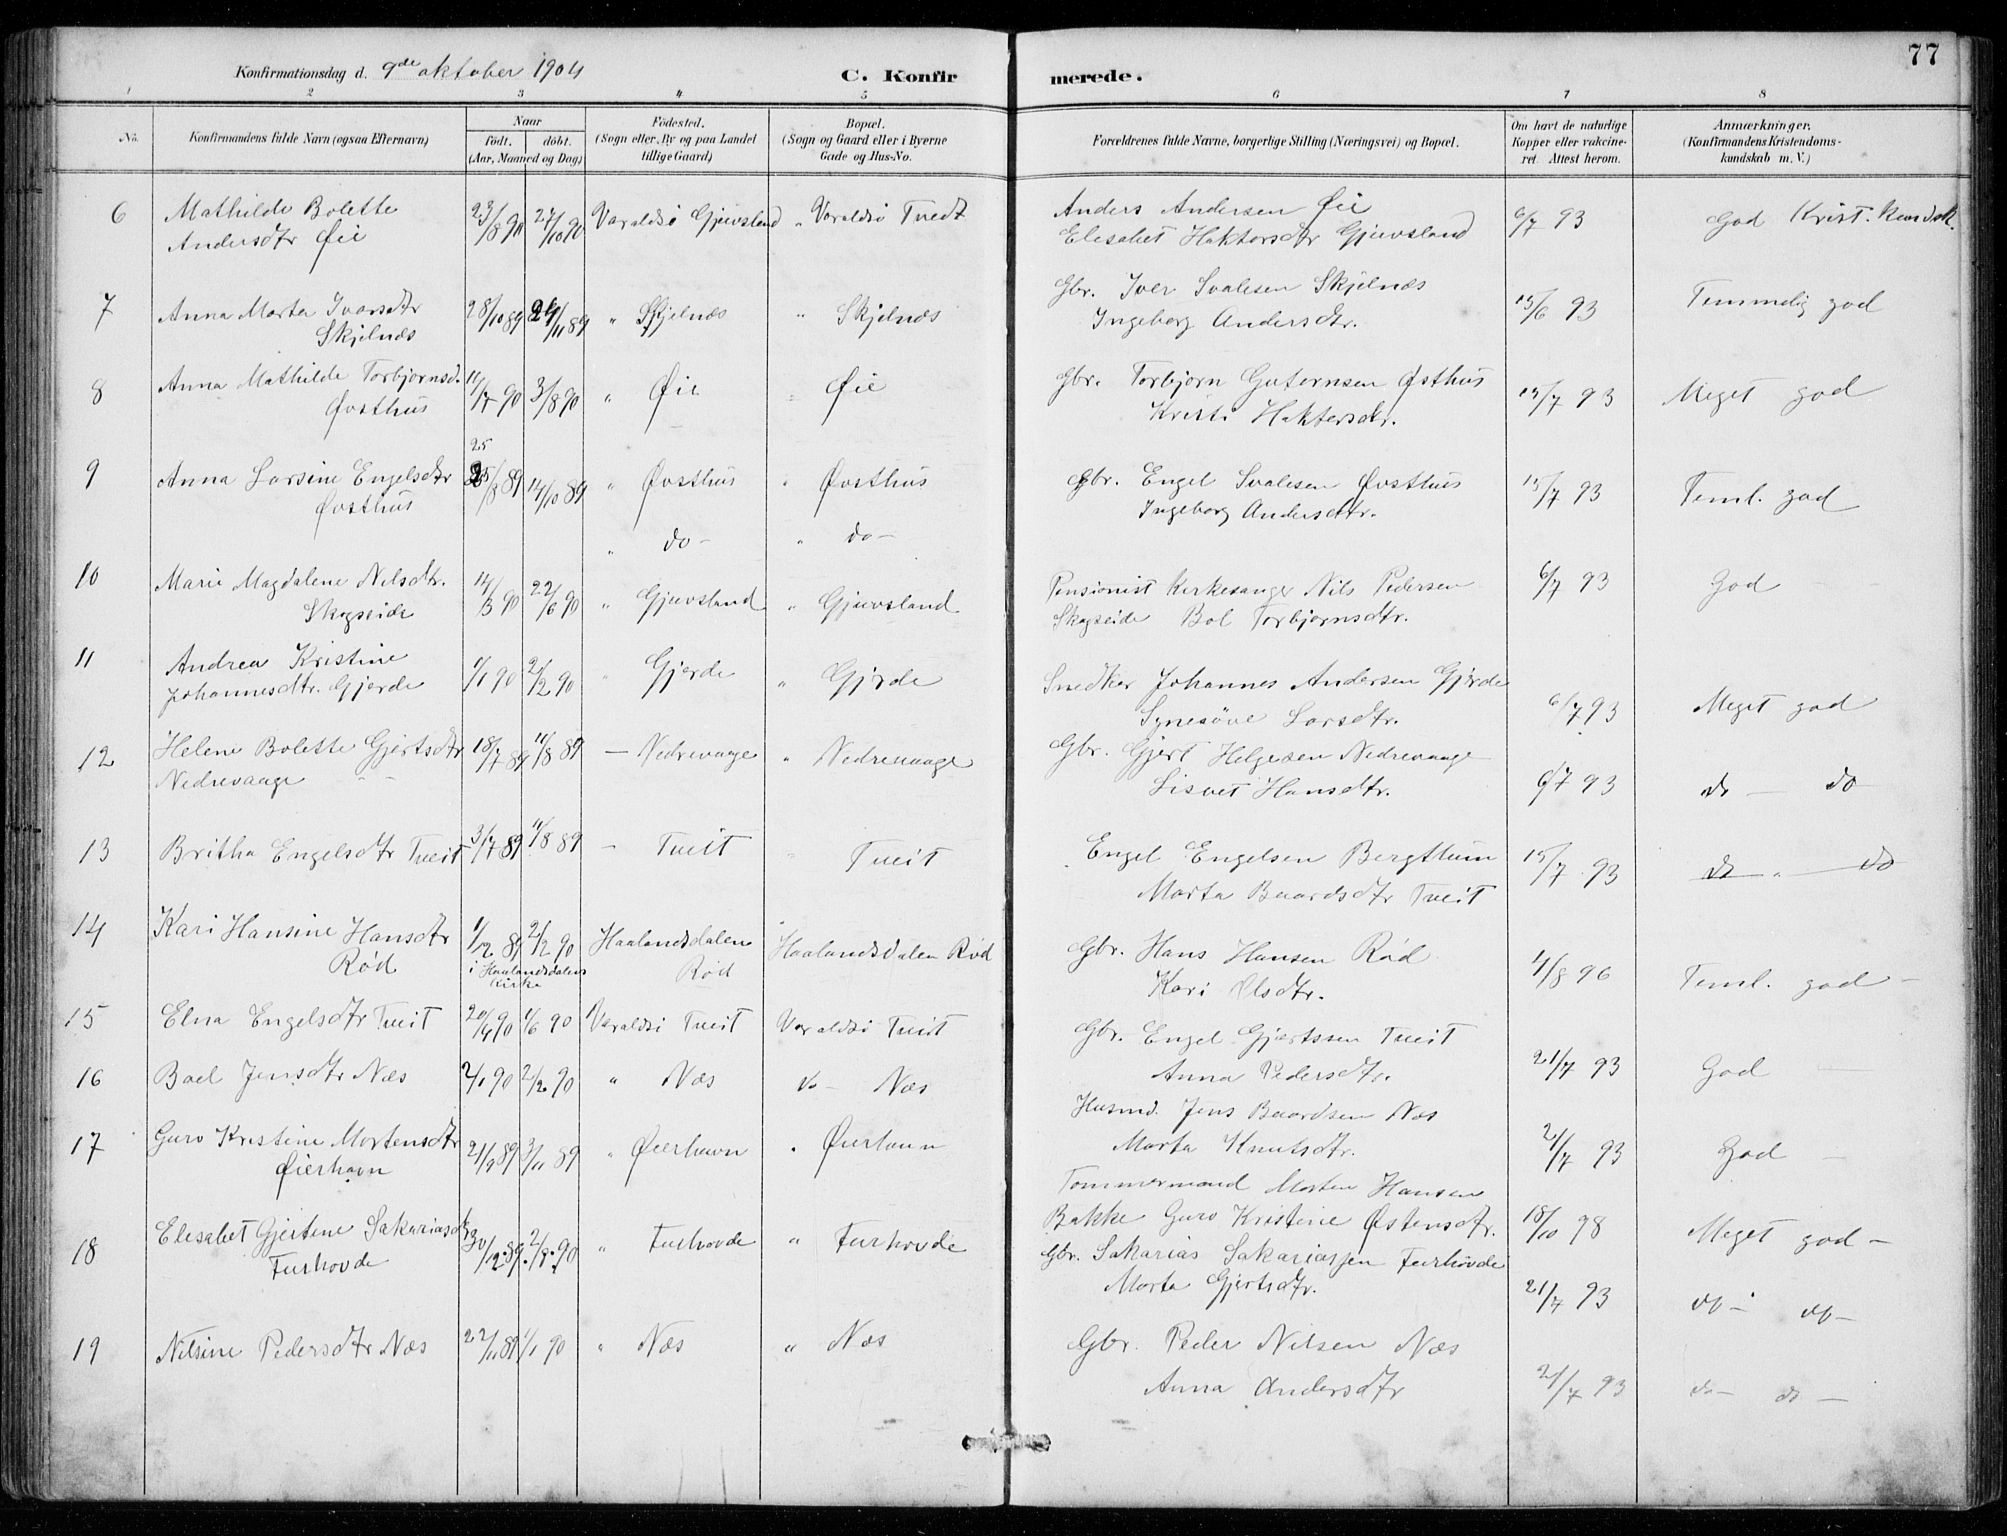 77
Konfirmationsdag d. 9de oktober 1904
C. Konfirmerede.
1 2 3 4 5 6 7 8
No.
Konfirmandens fulde Navn (ogsaa Efternavn)
Naar
født. døbt.
(Aar, Maaned og Dag)
Fødested.
(Sogn eller By og paa Landet
tillige Gaard)
Bopæl.
(Sogn og Gaard eller i Byerne
Gade og Hus-No.
Forældrenes fulde Navne, borgerlige Stilling (Næringsvei) og Bopæl.
Om havt de naturlige
Kopper eller vakcine-
ret. Attest herom.
Anmærkninger.
(Konfirmandens Kristendoms-
kundskab m. V.)
6 Mathilde Bolette 23/8 90 27/10 90 Varaldsö Gjuvsland " Varaldsö Tvedt Anders Andersen Øie 6/7 93 God Krist. kundsk.
Andersdtr Øie Elesabet Haktorsdtr Gjuvsland
7 Anna Marta Ivarsdtr 28/10 89 24/11 89 " Skjelnæs " Skjelnæs Gbr. Iver Svalesen Skjelnæs 15/6 93 Temmelig god
Skjelnæs Ingeborg Andersdtr.
8 Anna Mathilde Torbjornsd. 11/7 90 3/8 90 " Øie " Øie Gbr. Torbjorn Gutornsen Østhus 15/7 93 Meget god
Øvsthus Kristi Haktorsdtr.
25
9 Anna Larsine Engelsdtr 25/8 89 14/10 89 " Øvsthus " Øvsthus Gbr. Engel Svalesen Øvsthus 15/7 93 Teml. god
Øvsthus Ingeborg Andersdtr.
" do - " do -
10 Marie Magdalene Nilsdtr. 14/3 90 22/6 90 " Gjuvsland " Gjuvsland Pensionist Kirkesanger Nils Pedersen 6/7 93 God
Skogseide Skogseide Bol Torbjornsdtr.
11 Andrea Kristine 1/1 90 2/2 90 " Gjerde " Gjerde Snedker Johannes Andersen Gjerde 6/7 93 Meget god
Johannesdtr. Gjerde Synesöve Larsdtr.
12 Helene Bolette Gjertsdtr 18/7 89 11/8 89 — Nedrevaage " Nedrevaage Gbr. Gjert Helgesen Nedrevaage 6/7 93 do — do
Nedrevaage Lisvet Hansdtr.
13 Britha Engelsdtr Tveit 3/7 89 11/8 89 — Tveit " Tveit Engel Engelsen Bergthun 15/7 93 do " do
Marta Baardsdtr Tveit
14 Kari Hansine Hansdtr 1/12 89 2/2 90 Haalandsdalen Haalandsdalen Rød Gbr. Hans Hansen Rød 4/8 96 Teml. god -
Rød i Haalandsdalens Rød Kari Olsdtr.
Kirke
15 Elna Engelsdtr Tveit 20/4 90 1/6 90 Varaldsö Tveit Varaldsö Tveit Gbr. Engel Gjertssen Tveit 21/7 93 God
Anna Pedersdtr.
16 Boel Jensdtr Næs 2/1 90 2/2 90 " Næs do - Næs Husmd. Jens Baardsen Næs 21/7 93 God
Marta Knutsdtr.
17 Guro Kristine Mortensdtr 21/9 89 3/11 89 " Øierhavn " Øierhavn Tommermand Morten Hansen 18/10 98 Meget god -
Øierhavn Bakke Guro Kristine Østensdtr.
18 Elesabet Gjertine Sakariasdtr 30/12 89 2/8 90 " Furhovde " Furhovde Gbr. Sakarias Sakariassen Furhovde 21/7 93 do - do -
Furhovde Marta Gjertsdtr.
19 Nilsine Pedersdtr Næs 22/11 89 1/1 90 " Næs " Næs Gbr. Peder Nilsen Næs 21/7 93 do - do -
Anna Andersdtr